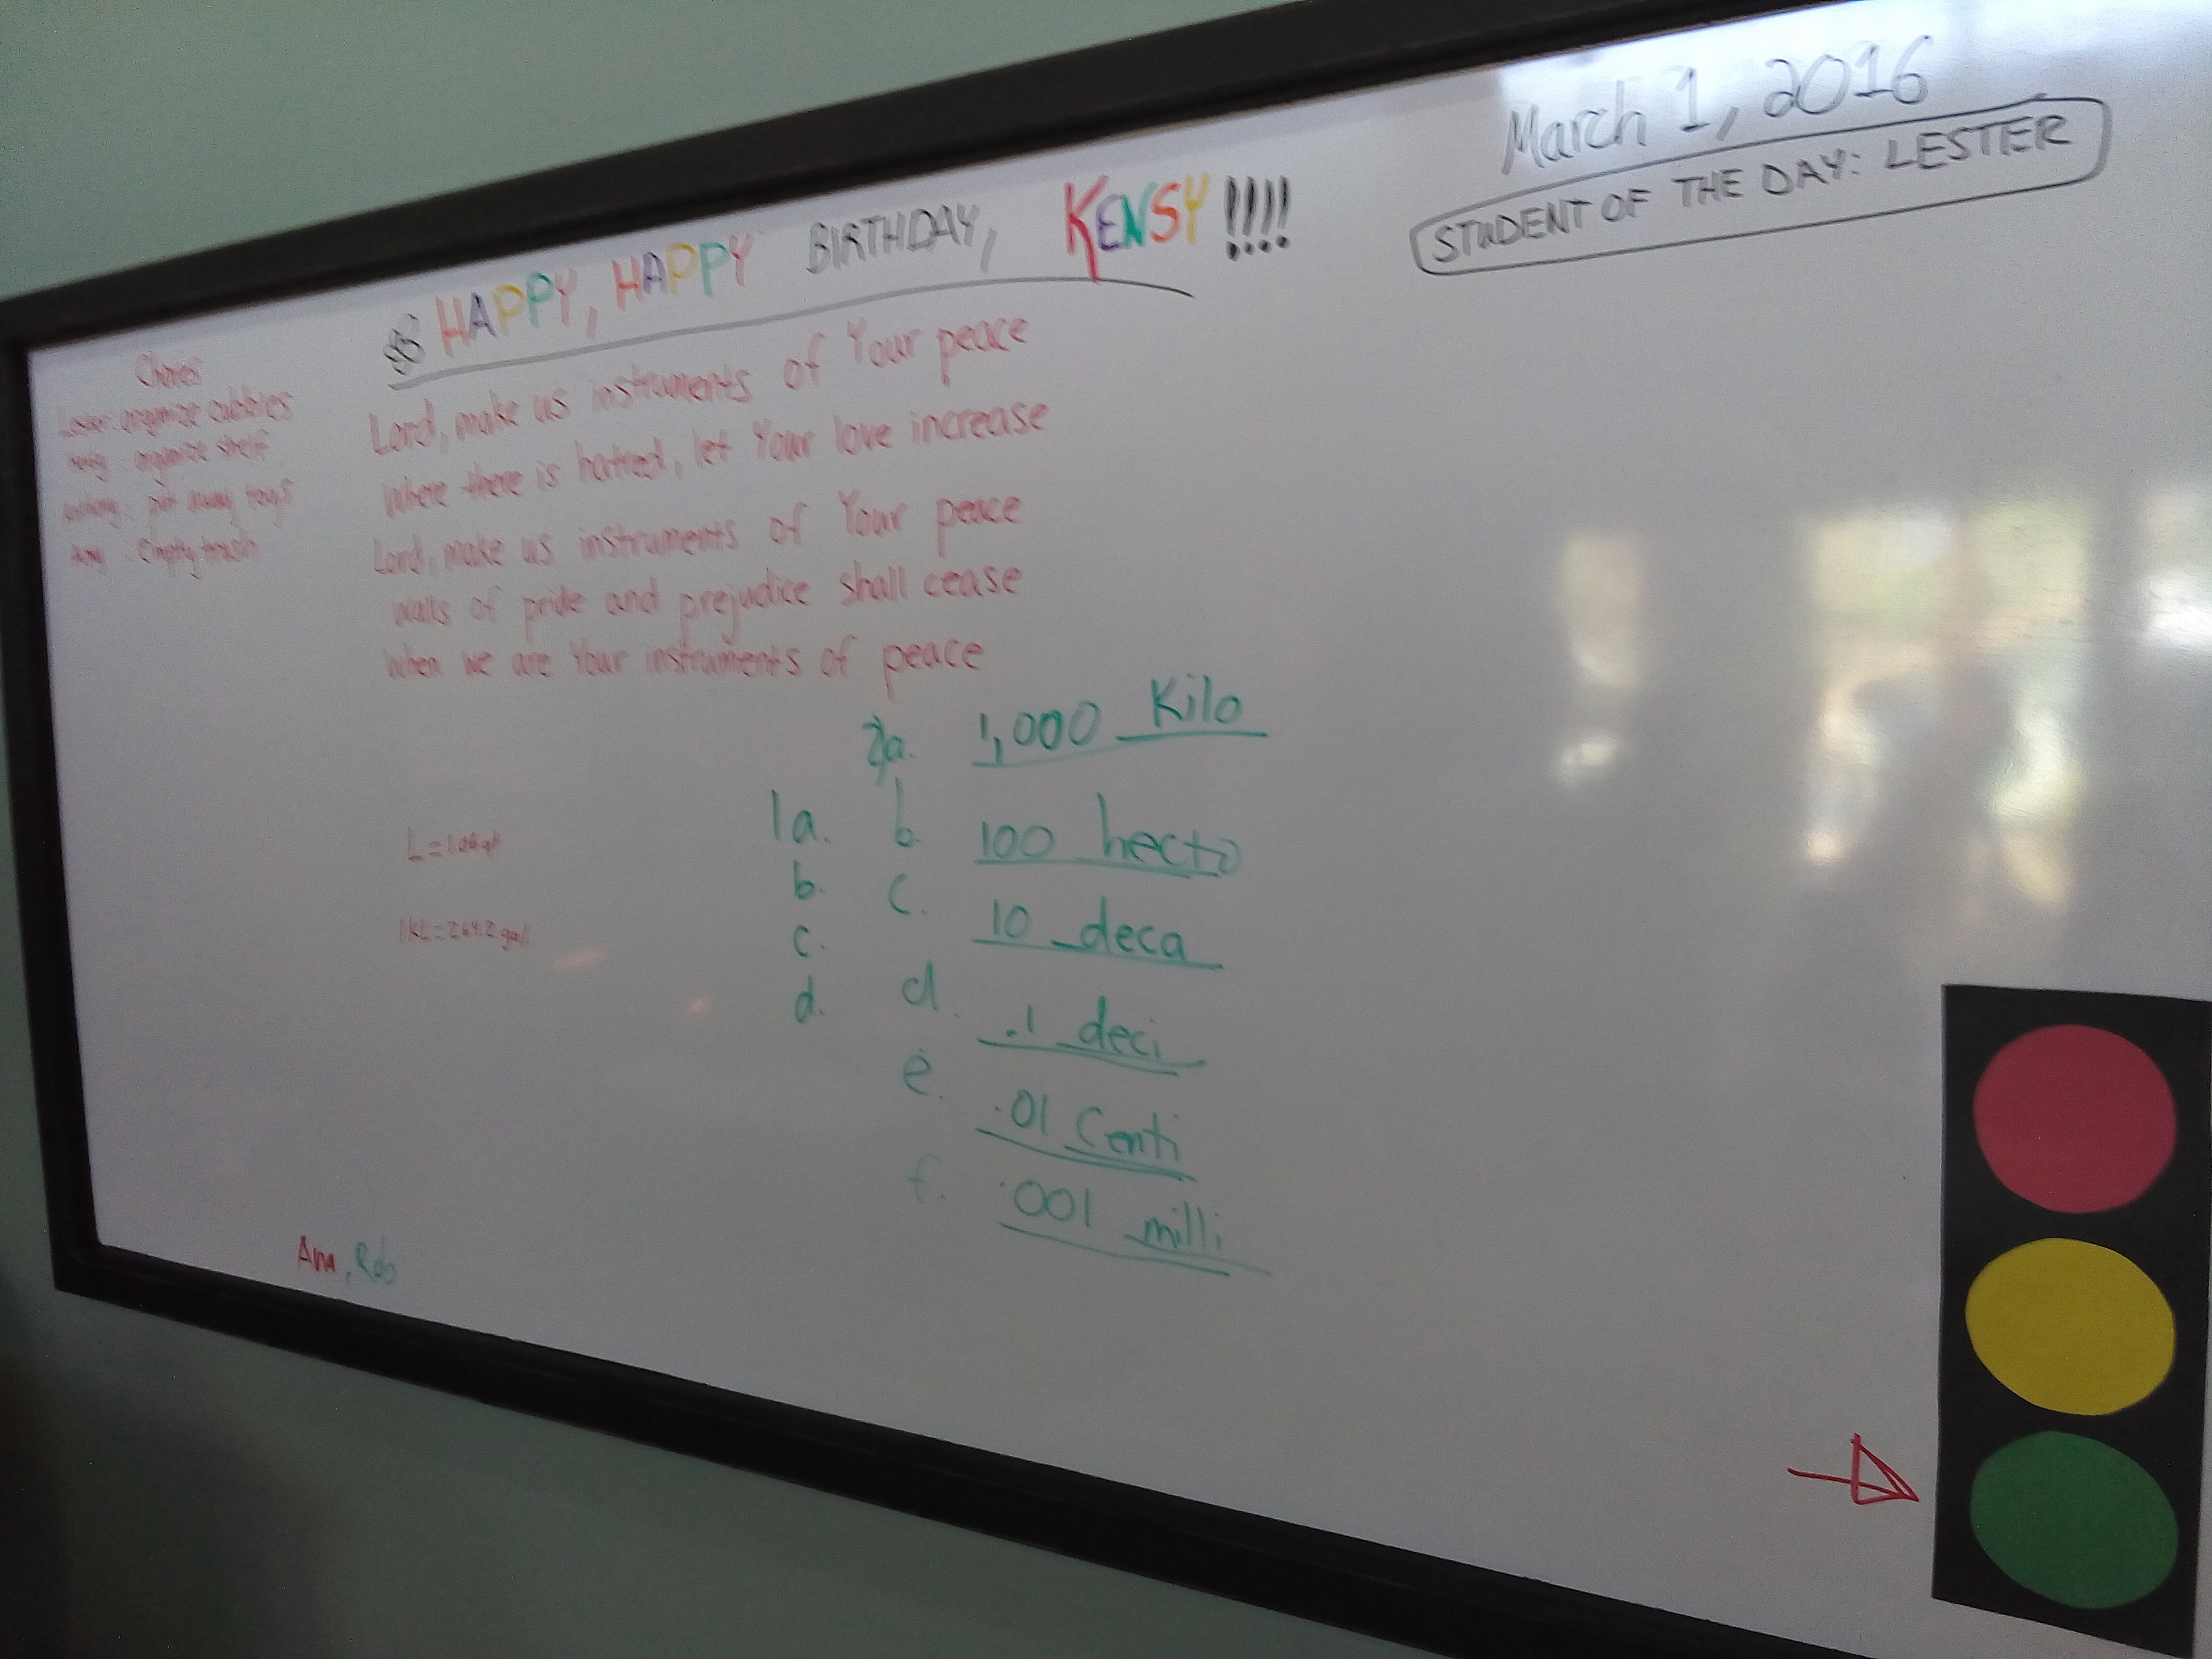 March 1, 2016
STUDENT OF THE DAY: LESTER
HAPPY, HAPPY BIRTHDAY, KENSY !!!!
Chores
Lester: organize cubbies
organize shelf
put away toys
Empty trash
Lord, make us instruments of Your peace
Where there is hatred, let Your love increase
Lord, make us instruments of Your peace
Walls of pride and prejudice shall cease
When we are Your instruments of peace
2a. 1,000 Kilo
b. 100 hecto
c. 10 deca
d. .1 deci
e. .01 Centi
f. .001 milli
1a.
b.
c.
d.
L = 1.06 qt
1 KL = 264.2 gal.
Ana, Rob